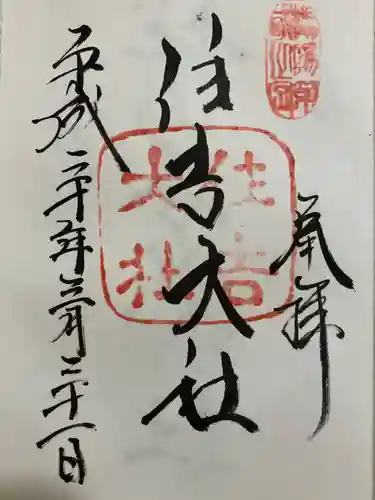 奉拝
住吉大社
住吉
大社
平成二十年三月二十一日